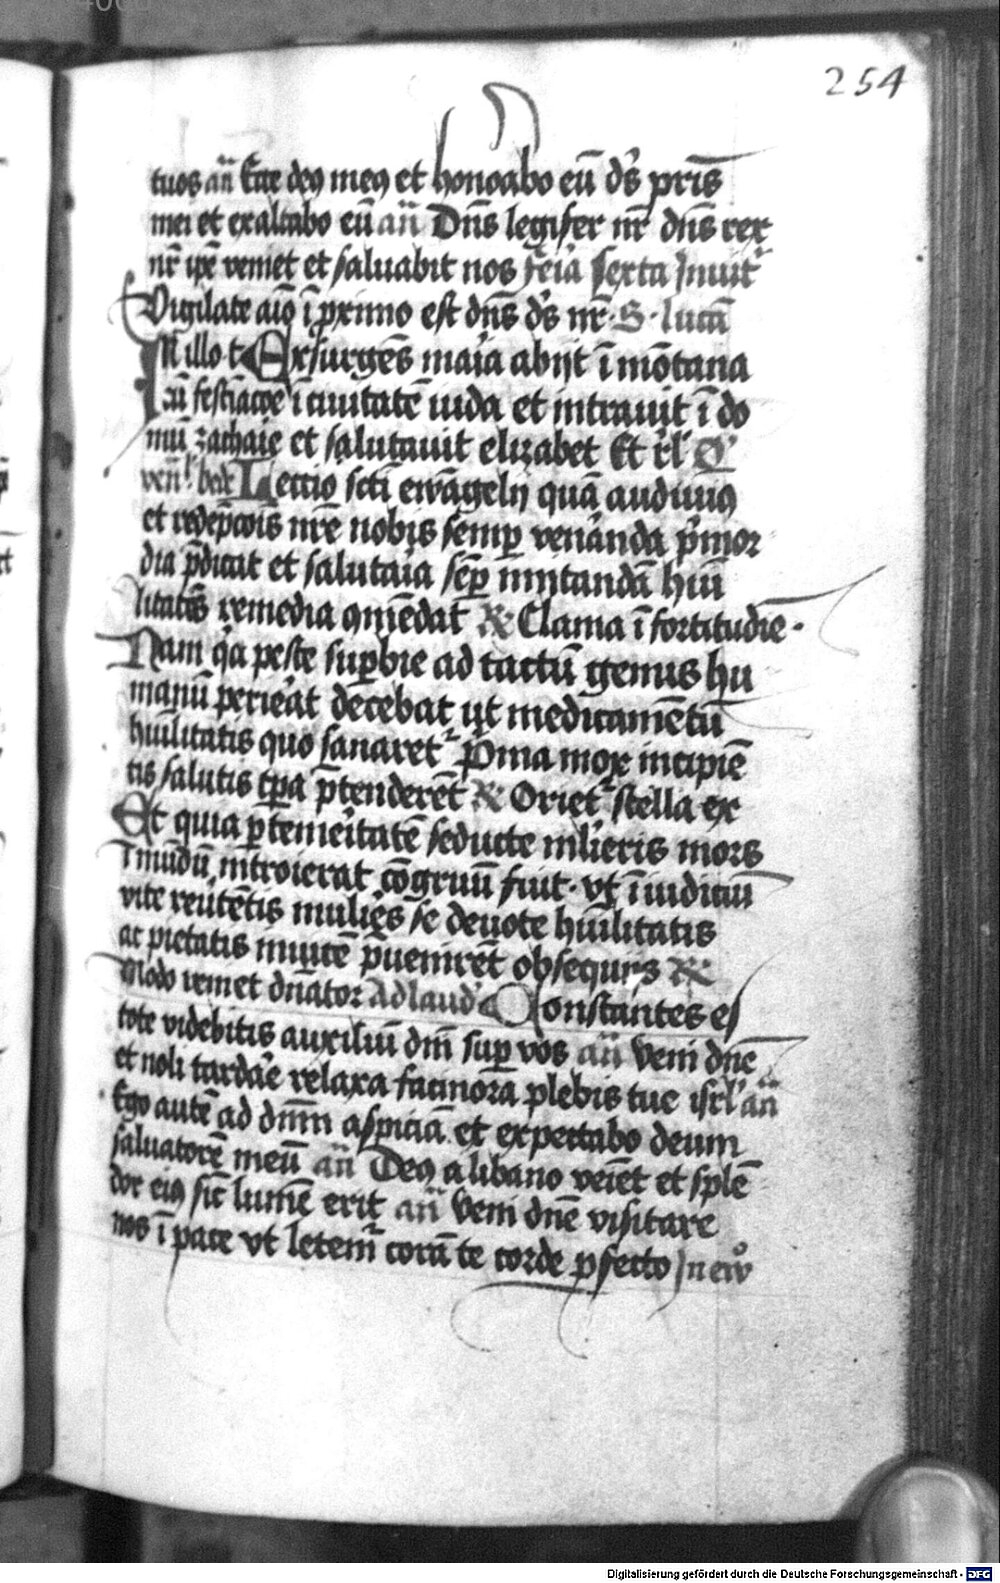 254
tuos an̄ Ecce deꝰ meꝰ et honorabo eū dẜ pr̄is
mei et exaltabo eū an̄ Dn̄s legifer nr̄ dn̄s rex
nr̄ ip̄e veniet et saluabit nos Feria sexta Inuit
Vigilate aīo ī proximo est dn̄s dẜ nr̄ · S · lucā
IN illo t Exsurgēs maria abijt ī mōtana
cū festīacōe ī ciuitatē iuda et intrauit ī do
mū zacharie et salutauit elizabet Et rl
ven̄ bed Lectio sc̄ti ewāgelij quā audiuimꝰ
et redēpcōis nr̄e nobis semꝑ veneranda primor
dia p̄dicat et salutaria sēꝑ imitandā hūi
litatis remedia ꝯmēdat ℟ Clama ī fortitudīe ·
Nam qꝛa peste suꝑbie ad tactū genus hu
manū perierat decebat vt medicamētū
hūilitatis quo sanaretꝰ prima mox incipiē
tis salutis tꝑa p̄tenderēt ℟ Orietꝰ stella ex
Et quia ꝑ temeritatē seducte ml̄ieris mors
ī mūdū introierat cōgruū fuit · vt ī iudiciū
vite reūtētis mulieres se deuote hūilitatis
ac pietatis inuicē p̄uenirēt obsequijs ℟
Modo veniet dn̄ator Ad laud Constantes es
tote videbitis auxiliū dn̄i suꝑ vos an̄ Veni dn̄e
et noli tardare relaxa facinora plebis tue isrl̄ an̄
Ego autē ad dn̄m aspiciā et expectabo deum
saluatorē meū an̄ Deꝰ a libano veīet et splē
dor eiꝰ sic̄ lumē erit an̄ Veni dn̄e visitare
nos ī pace vt letem̄ corā te corde ꝑfecto In ew̄o
Digitalisierung gefördert durch die Deutsche Forschungsgemeinschaft - DFG